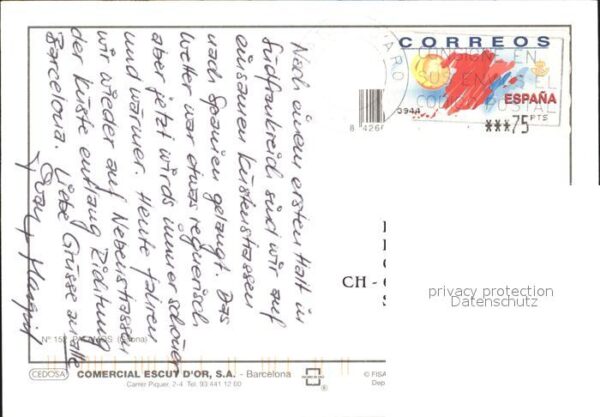 Nach einem ersten Halt in
Südfrankreich sind wir auf
einsamen Küstenstrassen
nach Spanien gelangt. Das
Wetter war etwas regnerisch
aber jetzt wirds immer schöner
und wärmer. Heute fahren
wir wieder auf Nebenstrassen
der Küste entlang Richtung
Barcelona. Liebe Grüsse an alle
CORREOS
CONSIGNE EN
SUS ENVIOS EL
CODIGO POSTAL
ESPAÑA
***75 PTS
0944
8 4266
CH -
privacy protection
Datenschutz
Nº 152
CEDOSA
COMERCIAL ESCUT D'OR, S.A. - Barcelona
Carrer Piquer, 2-4 Tel. 93 441 12 00
© FISA
Dep